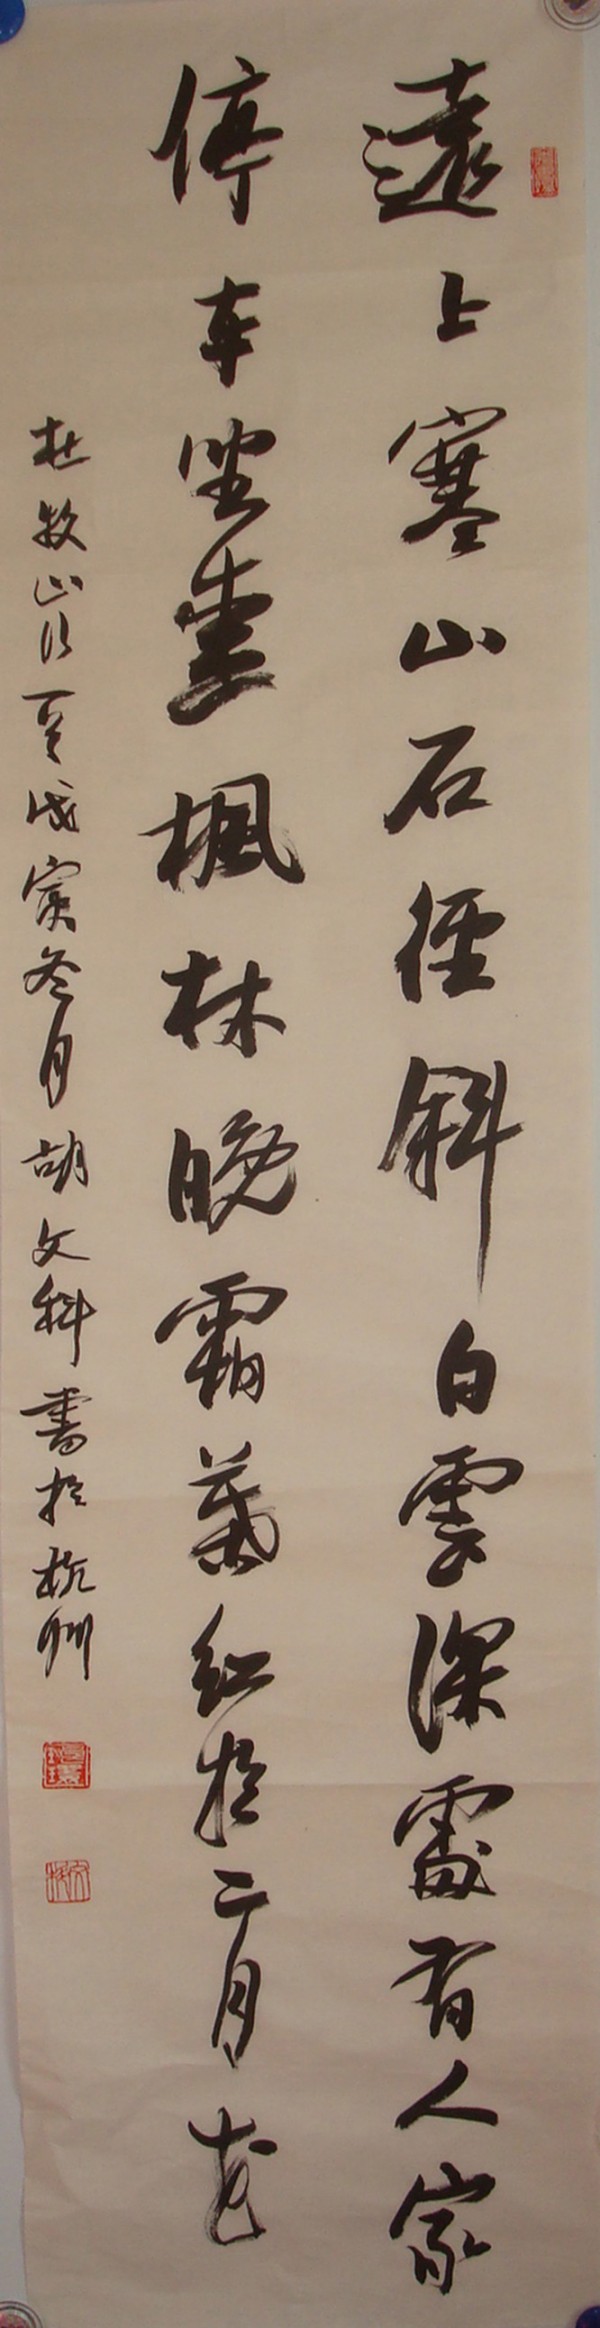 遠上寒山石徑斜白雲深處有人家
停車坐愛楓林晚霜葉紅於二月花
杜牧山行一首戊寅冬月胡文科書於杭州